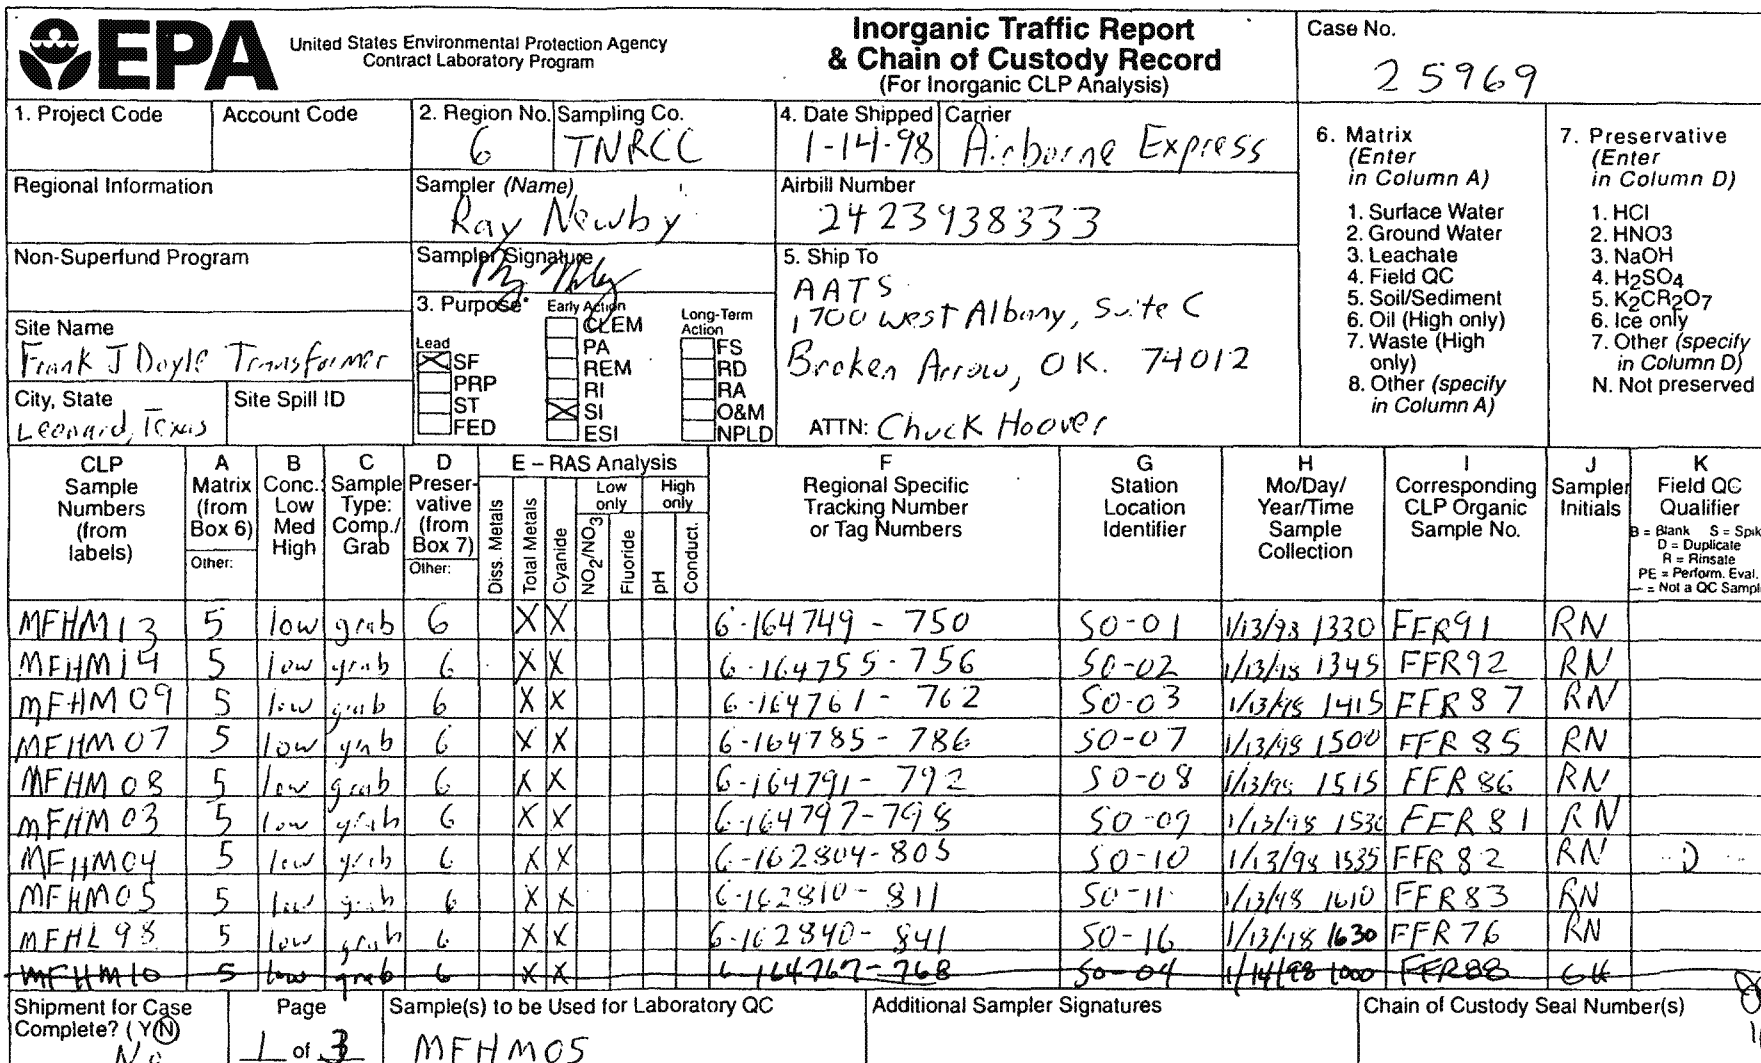 EPA
United States Environmental Protection Agency
Contract Laboratory Program
Inorganic Traffic Report
& Chain of Custody Record
(For Inorganic CLP Analysis)
Case No.
25969
1. Project Code
Account Code
2. Region No.
6
Sampling Co.
TNRCC
4. Date Shipped
1-14-98
Carrier
Airborne Express
Regional Information
Sampler (Name)
Ray Newby
Airbill Number
2423938333
Non-Superfund Program
Sampler Signature
5. Ship To
AATS
1700 West Albany, Suite C
Broken Arrow, OK. 74012
ATTN: Chuck Hoover
Site Name
Frank J Doyle Transformer
City, State
Leonard, Texas
Site Spill ID
3. Purpose*
Lead
SF
PRP
ST
FED
Early Action
CLEM
PA
REM
RI
SI
ESI
Long-Term
Action
FS
RD
RA
O&M
NPLD
6. Matrix
(Enter
in Column A)
1. Surface Water
2. Ground Water
3. Leachate
4. Field QC
5. Soil/Sediment
6. Oil (High only)
7. Waste (High
only)
8. Other (specify
in Column A)
7. Preservative
(Enter
in Column D)
1. HCl
2. HNO3
3. NaOH
4. H2SO4
5. K2CR2O7
6. Ice only
7. Other (specify
in Column D)
N. Not preserved
CLP
Sample
Numbers
(from
labels)
A
Matrix
(from
Box 6)
Other:
B
Conc.:
Low
Med
High
C
Sample
Type:
Comp./
Grab
D
Preser-
vative
(from
Box 7)
Other:
E – RAS Analysis
Low
only
High
only
Diss. Metals
Total Metals
Cyanide
NO2/NO3
Fluoride
pH
Conduct.
F
Regional Specific
Tracking Number
or Tag Numbers
G
Station
Location
Identifier
H
Mo/Day/
Year/Time
Sample
Collection
I
Corresponding
CLP Organic
Sample No.
J
Sampler
Initials
K
Field QC
Qualifier
B = Blank S = Spik
D = Duplicate
R = Rinsate
PE = Perform. Eval.
— = Not a QC Sampl
MFHM13 5 low grab 6 X X 6-164749 - 750 SO-01 1/13/98 1330 FFR91 RN
MFHM14 5 low grab 6 X X 6-164755-756 SO-02 1/13/98 1345 FFR92 RN
MFHM09 5 low grab 6 X X 6-164761- 762 SO-03 1/13/98 1415 FFR87 RN
MFHM07 5 low grab 6 X X 6-164785-786 SO-07 1/13/98 1500 FFR85 RN
MFHM08 5 low grab 6 X X 6-164791-792 SO-08 1/13/98 1515 FFR86 RN
MFHM03 5 low grab 6 X X 6-164797-798 SO-09 1/13/98 1530 FFR81 RN
MFHM04 5 low grab 6 X X 6-162804-805 SO-10 1/13/98 1535 FFR82 RN D
MFHM05 5 low grab 6 X X 6-162810-811 SO-11 1/13/98 1610 FFR83 RN
MFHL98 5 low grab 6 X X 6-162840-841 SO-16 1/13/98 1630 FFR76 RN
MFHM10 5 low grab 6 X X 6-164767-768 SO-04 1/14/98 1000 FFR88 GH
Shipment for Case
Complete? (Y/N)
No
Page
1 of 3
Sample(s) to be Used for Laboratory QC
MFHM05
Additional Sampler Signatures
Chain of Custody Seal Number(s)